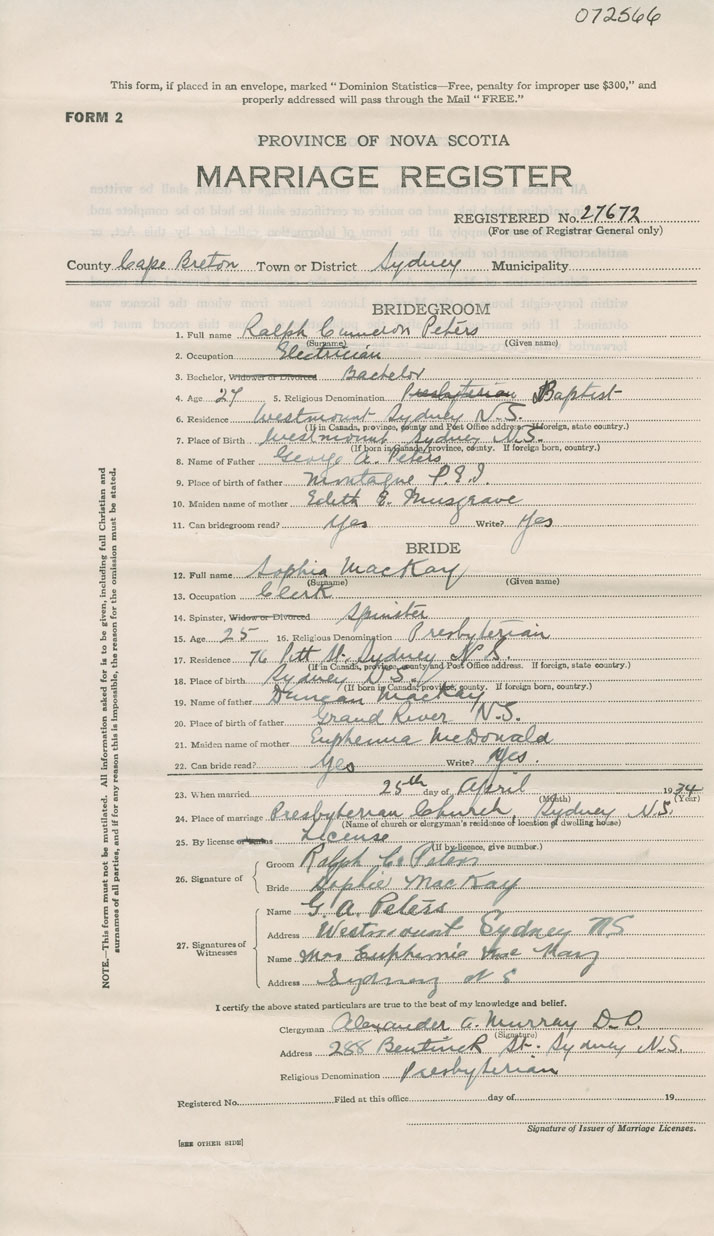 072566
This form, if placed in an envelope, marked "Dominion Statistics—Free, penalty for improper use $300," and
properly addressed will pass through the Mail "FREE."
FORM 2
PROVINCE OF NOVA SCOTIA
MARRIAGE REGISTER
REGISTERED No. 27672
(For use of Registrar General only)
County Cape Breton Town or District Sydney Municipality
BRIDEGROOM
1. Full name Ralph Cameron Peters
(Surname) (Given name)
2. Occupation Electrician
3. Bachelor, Widower or Divorced Bachelor
4. Age 27 5. Religious Denomination Presbyterian Baptist
6. Residence Westmount Sydney N.S.
(If in Canada, province, county and Post Office address. If foreign, state country.)
7. Place of Birth Westmount Sydney N.S.
(If born in Canada, province, county. If foreign born, country.)
8. Name of Father George A. Peters
9. Place of birth of father Montague P.E.I.
10. Maiden name of mother Edith E. Musgrave
11. Can bridegroom read? Yes Write? Yes
BRIDE
12. Full name Sophia MacKay
(Surname) (Given name)
13. Occupation Clerk
14. Spinster, Widow or Divorced Spinster
15. Age 25 16. Religious Denomination Presbyterian
17. Residence 76 Pitt St. Sydney N.S.
(If in Canada, province, county and Post Office address. If foreign, state country.)
18. Place of birth Sydney N.S.
(If born in Canada, province, county. If foreign born, country.)
19. Name of father Duncan MacKay
20. Place of birth of father Grand River N.S.
21. Maiden name of mother Euphemia McDonald
22. Can bride read? Yes Write? Yes.
23. When married 25th day of April 1934
(Month) (Year)
24. Place of marriage Presbyterian Church, Sydney N.S.
(Name of church or clergyman's residence or location of dwelling house)
25. By license or banns License
(If by license, give number.)
26. Signature of
Groom Ralph C. Peters
Bride Sophie MacKay
27. Signatures of Witnesses
Name G. A. Peters
Address Westmount Sydney NS
Name Mrs Euphemia
Address Sydney N S
I certify the above stated particulars are true to the best of my knowledge and belief.
Clergyman Alexander A. Murray D.D.
(Signature)
Address 288 Bentinck St. Sydney N.S.
Religious Denomination Presbyterian
Registered No. Filed at this office day of 19
Signature of Issuer of Marriage Licenses.
[SEE OTHER SIDE]
NOTE.—This form must not be mutilated. All information asked for is to be given, including full Christian and
surnames of all parties, and if for any reason this is impossible, the reason for the omission must be stated.